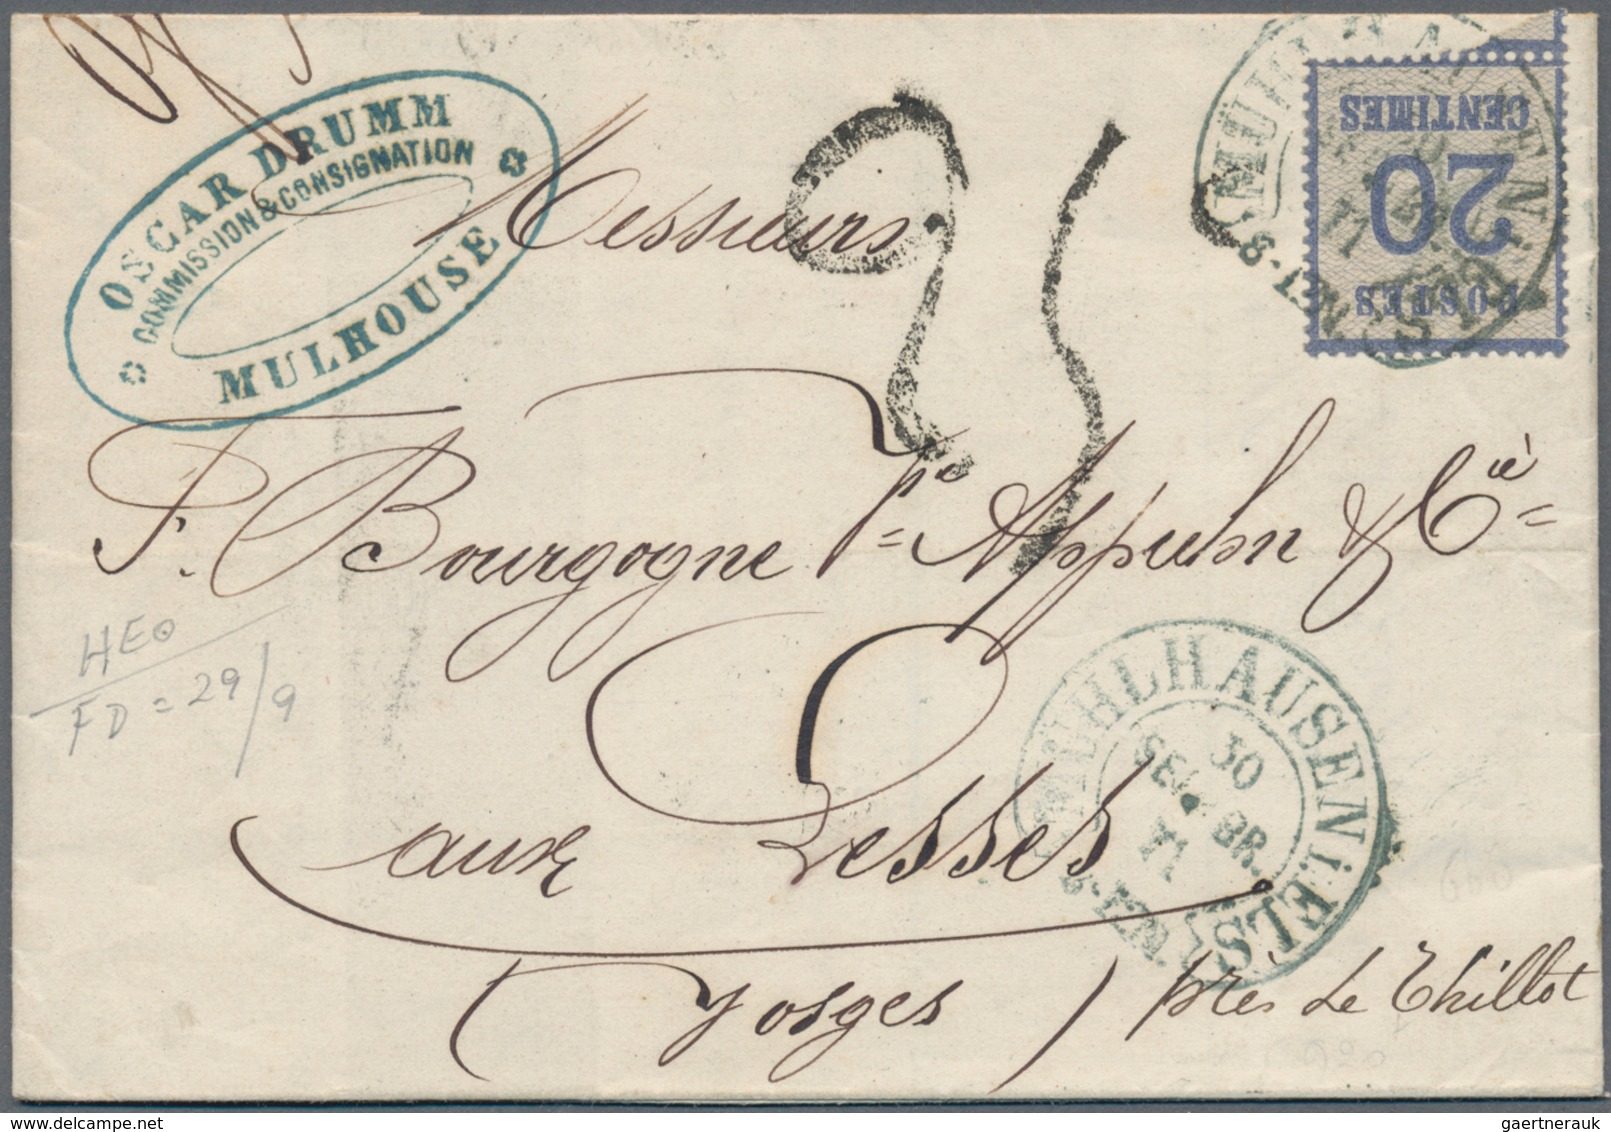 OSCAR DRUMM
COMMISSION & CONSIGNATION
MULHOUSE
Messieurs
25
POSTES
20
CENTIMES
F. Bourgogne Ppe Appuhn & Cie
aux Zesses
(Vosges)
près Le Thillot
MÜHLHAUSEN I. ELSASS
30
SEPTBR.
71
HEO
FD = 29/9
gaertnerauk @ delcampe.net